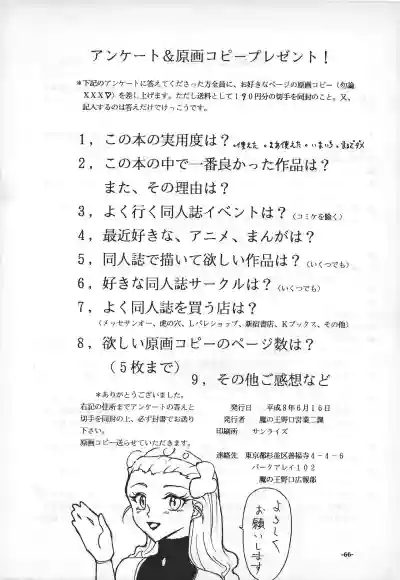 アンケート&原画コピープレゼント!
*下記のアンケートに答えてくださった方全員に、お好きなページの原画コピー(勿論
XXX▽)を差し上げます。ただし送料として190円分の切手を同封のこと。又、
記入するのは答えだけでけっこうです。
1,この本の実用度は?・使えた・まあ使えた・いまいち・まるでダメ
2,この本の中で一番良かった作品は?
また、その理由は?
3,よく行く同人誌イベントは?(コミケを除く)
4,最近好きな、アニメ、まんがは?
5,同人誌で描いて欲しい作品は?(いくつでも)
6,好きな同人誌サークルは?(いくつでも)
7,よく同人誌を買う店は?
(メッセサンオー、虎の穴、Lパレショップ、新宿書店、Kブックス、その他)
8,欲しい原画コピーのページ数は?
(5枚まで)
9,その他ご感想など
*ありがとうございました。
右記の住所までアンケートの答えと
切手を同封の上、必ず封書でお送り
下さい。
原画コピー送らせていただきます。
発行日 平成8年6月16日
発行者 魔の王野口営業二課
印刷所 サンライズ
連絡先 東京都杉並区善福寺4-4-6
パークアレイ102
魔の王野口広報部
よろしく
お願いします
-66-